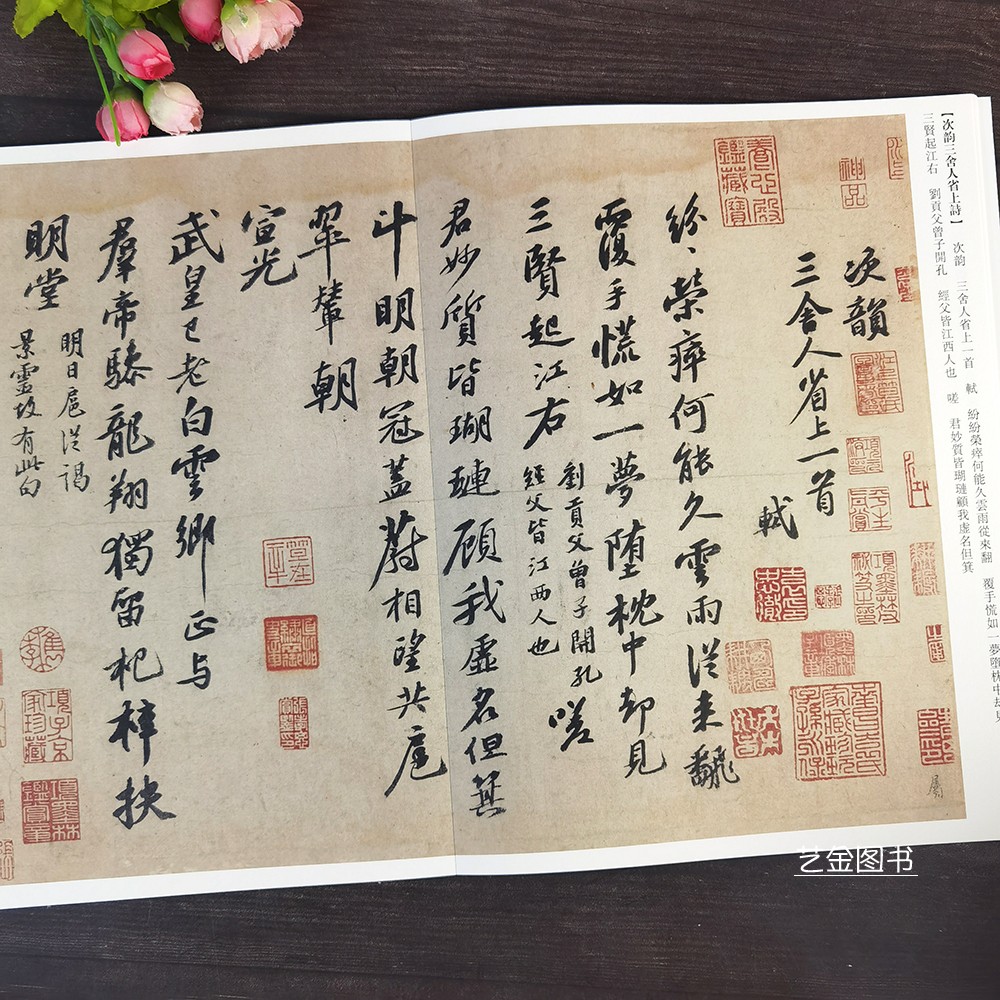 【次韵三舍人省上詩】　次韵　三舍人省上一首　軾　紛紛榮瘁何能久雲雨從來翻　覆手慌如一夢墮枕中却見
三賢起江右　劉貢父曾子開孔　經父皆江西人也　嗟　君妙質皆瑚璉顧我虛名但箕
次韻
三舍人省上一首
軾
紛〻榮瘁何能久雲雨從来翻
覆手慌如一夢墮枕中却見
三賢起江右
劉貢父曾子開孔
經父皆江西人也
嗟
君妙質皆瑚璉顧我虛名但箕
斗明朝冠蓋蔚相望共扈
翠輦朝
宣光
武皇已老白雲鄉正与
羣帝驂龍翔獨留杞梓扶
明堂
明日扈從謁
景靈故有此句
神品
項子京家珍藏
項墨林鑑賞章
艺金图书